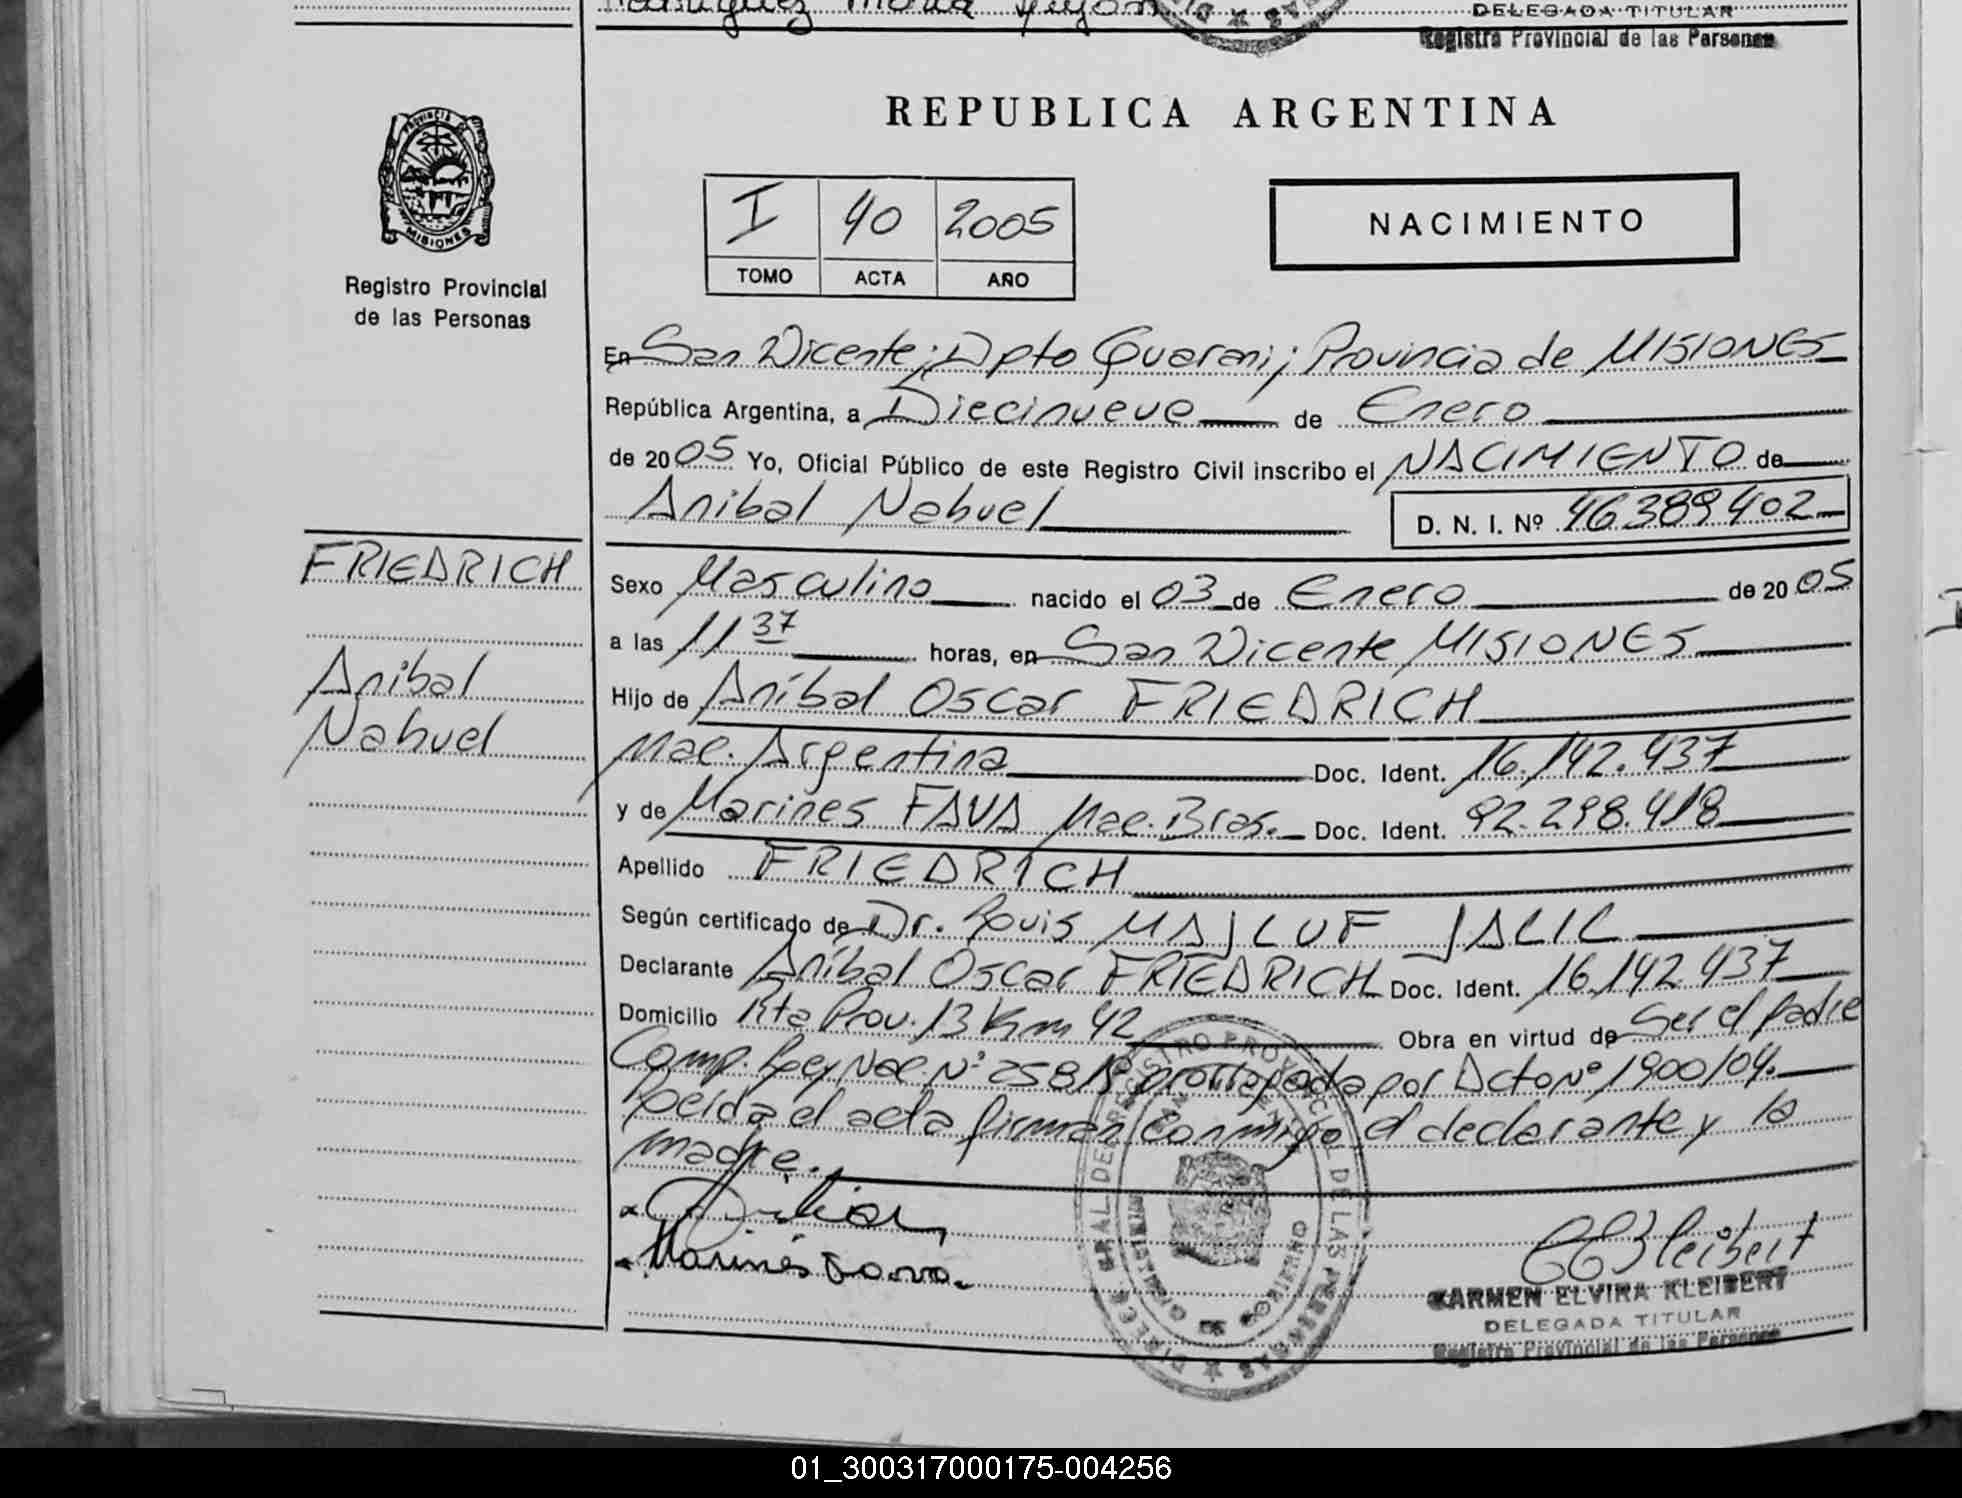 DELEGADA TITULAR
Registro Provincial de las Personas
PROVINCIA DE
MISIONES
Registro Provincial
de las Personas
REPUBLICA ARGENTINA
I 40 2005
TOMO ACTA AÑO
NACIMIENTO
En San Vicente; Dpto Guarani; Provincia de MISIONES
República Argentina, a Diecinueve de Enero
de 2005 Yo, Oficial Público de este Registro Civil inscribo el NACIMIENTO de
Anibal Nahuel
D. N. I. Nº 46389402
FRIEDRICH
Anibal
Nahuel
Sexo Masculino nacido el 03 de Enero de 2005
a las 11 37 horas, en San Vicente MISIONES
Hijo de Aníbal Oscar FRIEDRICH
Nac. Argentina Doc. Ident. 16.142.437
y de Marines FAVA Nac. Bras. Doc. Ident. 92.298.418
Apellido FRIEDRICH
Según certificado de Dr. Louis MAJLUF JALIL
Declarante Aníbal Oscar FRIEDRICH Doc. Ident. 16.142.437
Domicilio Rta Prov. 13 Km 42 Obra en virtud de Ser el padre
Comp. Ley Nac. Nº 25819 prorrogada por Dcto Nº 1900/04.
Leida el acta firman conmigo el declarante y la
madre.
Marinés Fava
CEKleibert
CARMEN ELVIRA KLEIBERT
DELEGADA TITULAR
Registro Provincial de las Personas
01_300317000175-004256